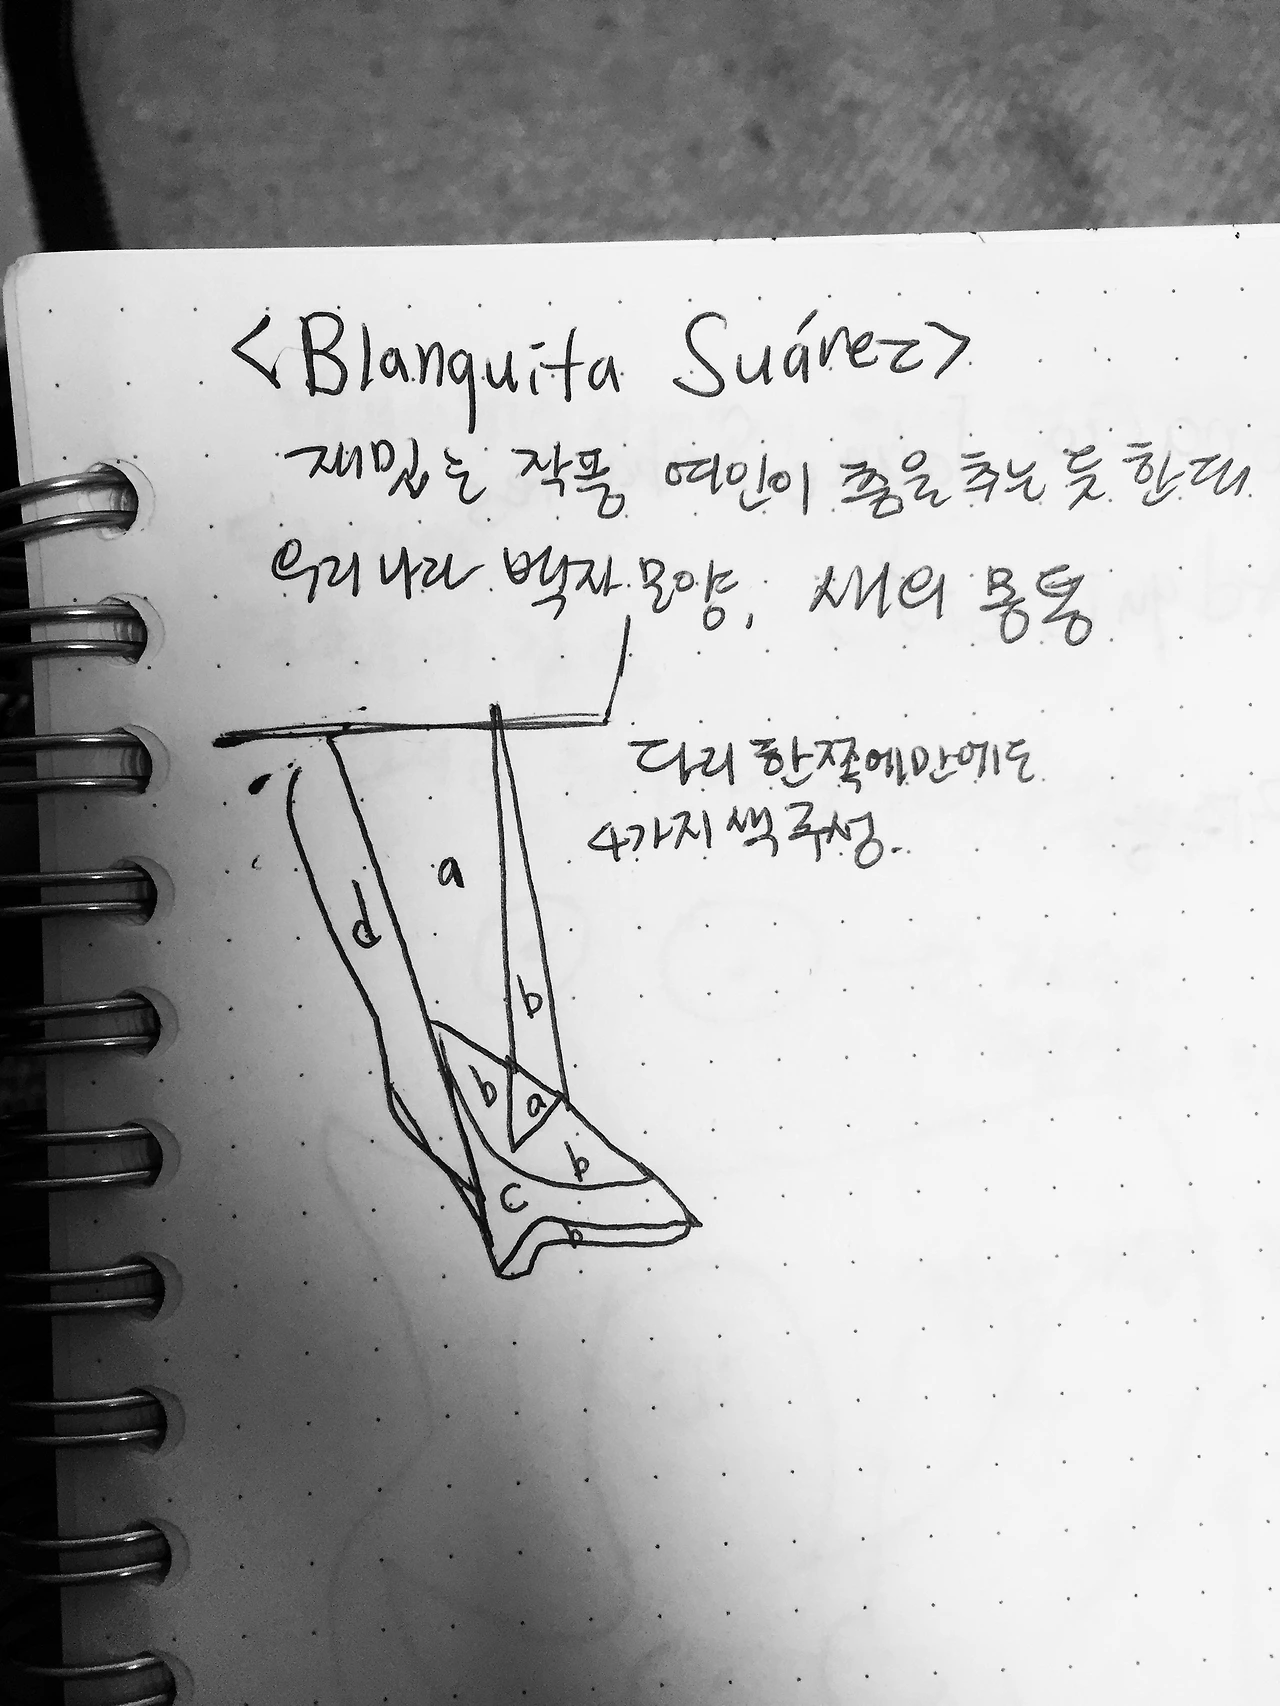 <Blanquita Suárez>
재밌는 작품 여인이 춤을 추는 듯 한데
우리나라 백자 모양, 새의 몸통
다리 한쪽에만에도
4가지 색 구성.
a
d
b
b
a
b
c
b